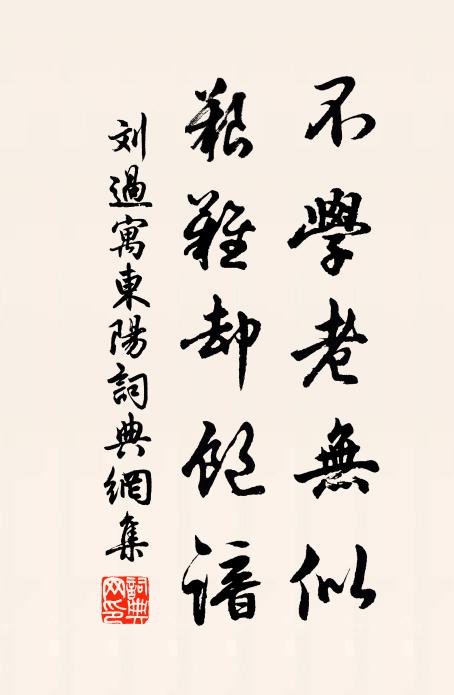 不學老無似
艱難却飽諳
刘過寓東陽詞典網集
詞典網印